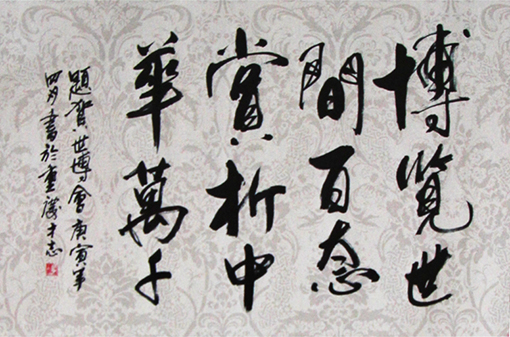 博覽世
間百态
賞析中
華萬千
題賀世博會庚寅年
四月書於重慶才志